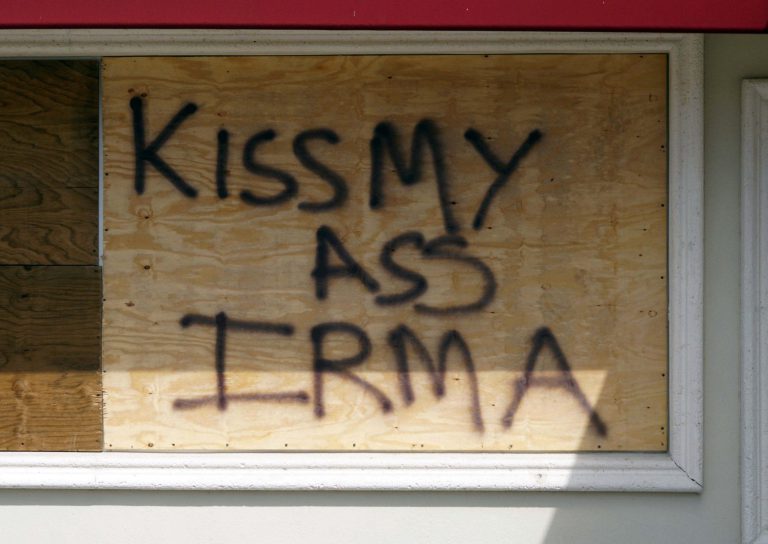 KISS MY
ASS
IRMA